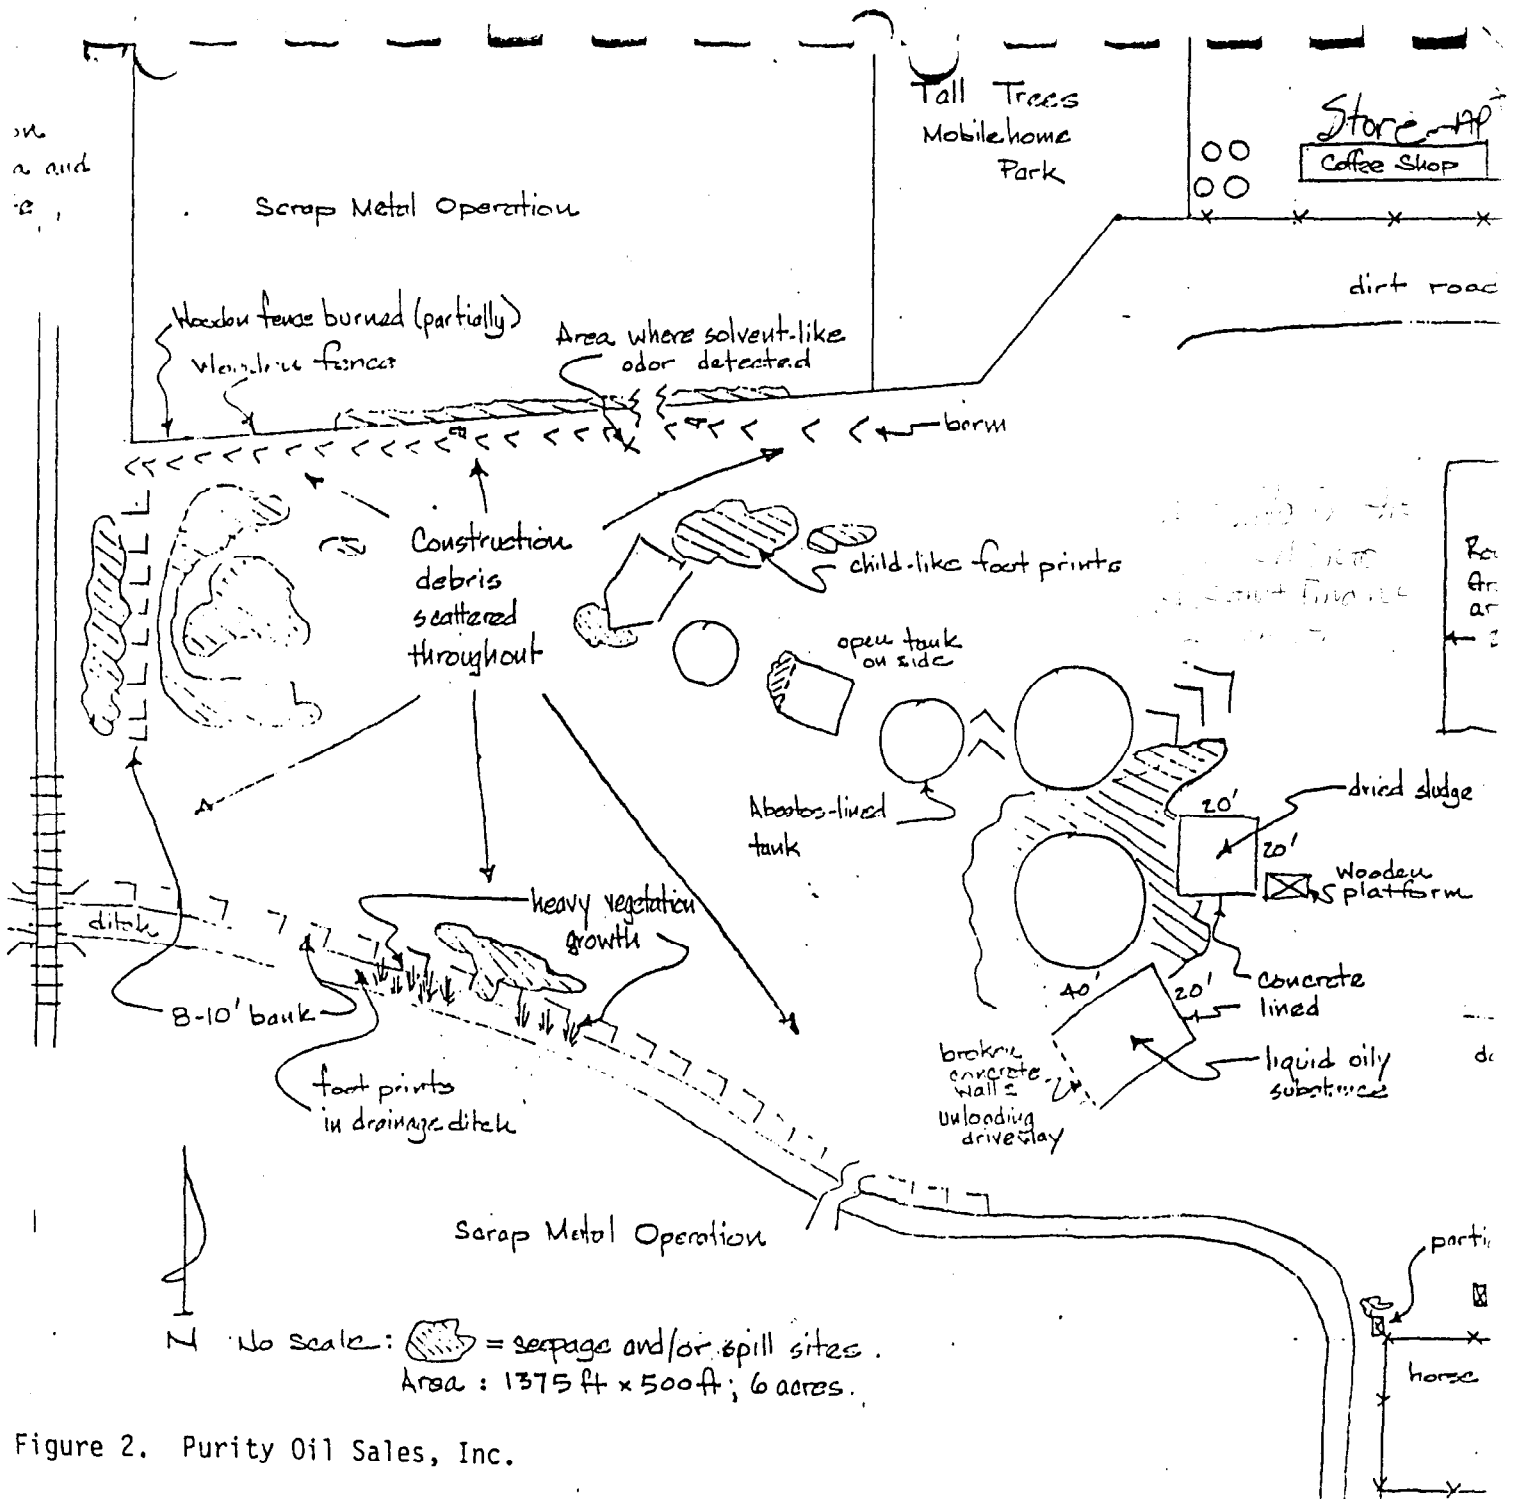 Tall Trees
Mobilehome
Park
Store
Coffee Shop
and
Scrap Metal Operation
dirt road
Wooden fence burned (partially)
Area where solvent-like
odor detected
berm
Construction
debris
scattered
throughout
child-like foot prints
open tank
on side
Abestos-lined
tank
20'
dried sludge
20'
Wooden
platform
heavy vegetation
growth
ditch
8-10' bank
40'
20'
Concrete
lined
broken
concrete
walls
unloading
driveway
liquid oily
substance
foot prints
in drainage ditch
Scrap Metal Operation
N
No Scale: = seepage and/or spill sites.
Area: 1375 ft x 500 ft; 6 acres.
horse
Figure 2. Purity Oil Sales, Inc.